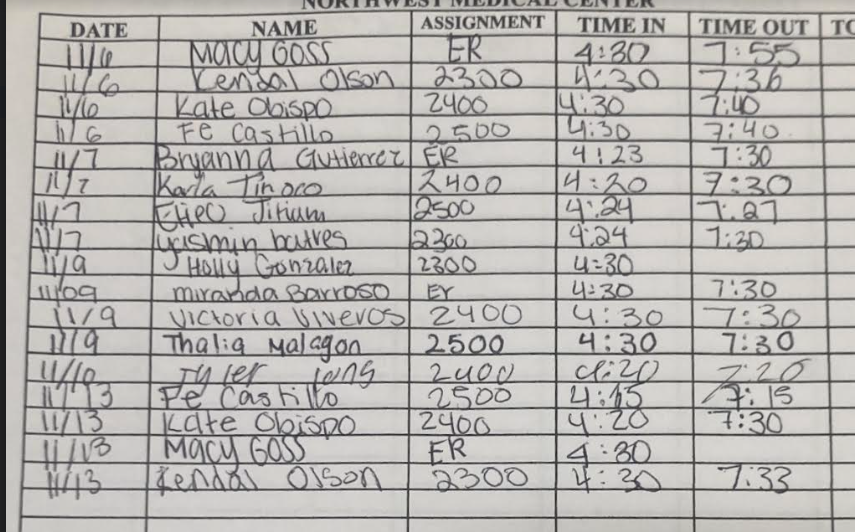 NORTHWEST MEDICAL CENTER
DATE NAME ASSIGNMENT TIME IN TIME OUT TO
11/6 Macy Goss ER 4:30 7:55
11/6 Kendal Olson 2300 4:30 7:36
11/6 Kate Obispo 2400 4:30 7:40
11/6 Fe Castillo 2500 4:30 7:40
11/7 Bryanna Gutierrez ER 4:23 7:30
11/7 Karla Tinoco 2400 4:20 7:30
11/7 2500 4:24 7:27
11/7 yasmin batres 2300 4:24 7:30
11/9 Holly Gonzalez 2300 4:30
11/09 miranda Barroso Er 4:30 7:30
11/9 Victoria Viveros 2400 4:30 7:30
11/9 Thalia Malagon 2500 4:30 7:30
11/10 Tyler long 2400 4:20 7:20
11/13 Fe Castillo 2500 4:15 7:15
11/13 Kate Obispo 2400 4:20 7:30
11/13 Macy Goss ER 4:30
11/13 Kendal Olson 2300 4:30 7:33